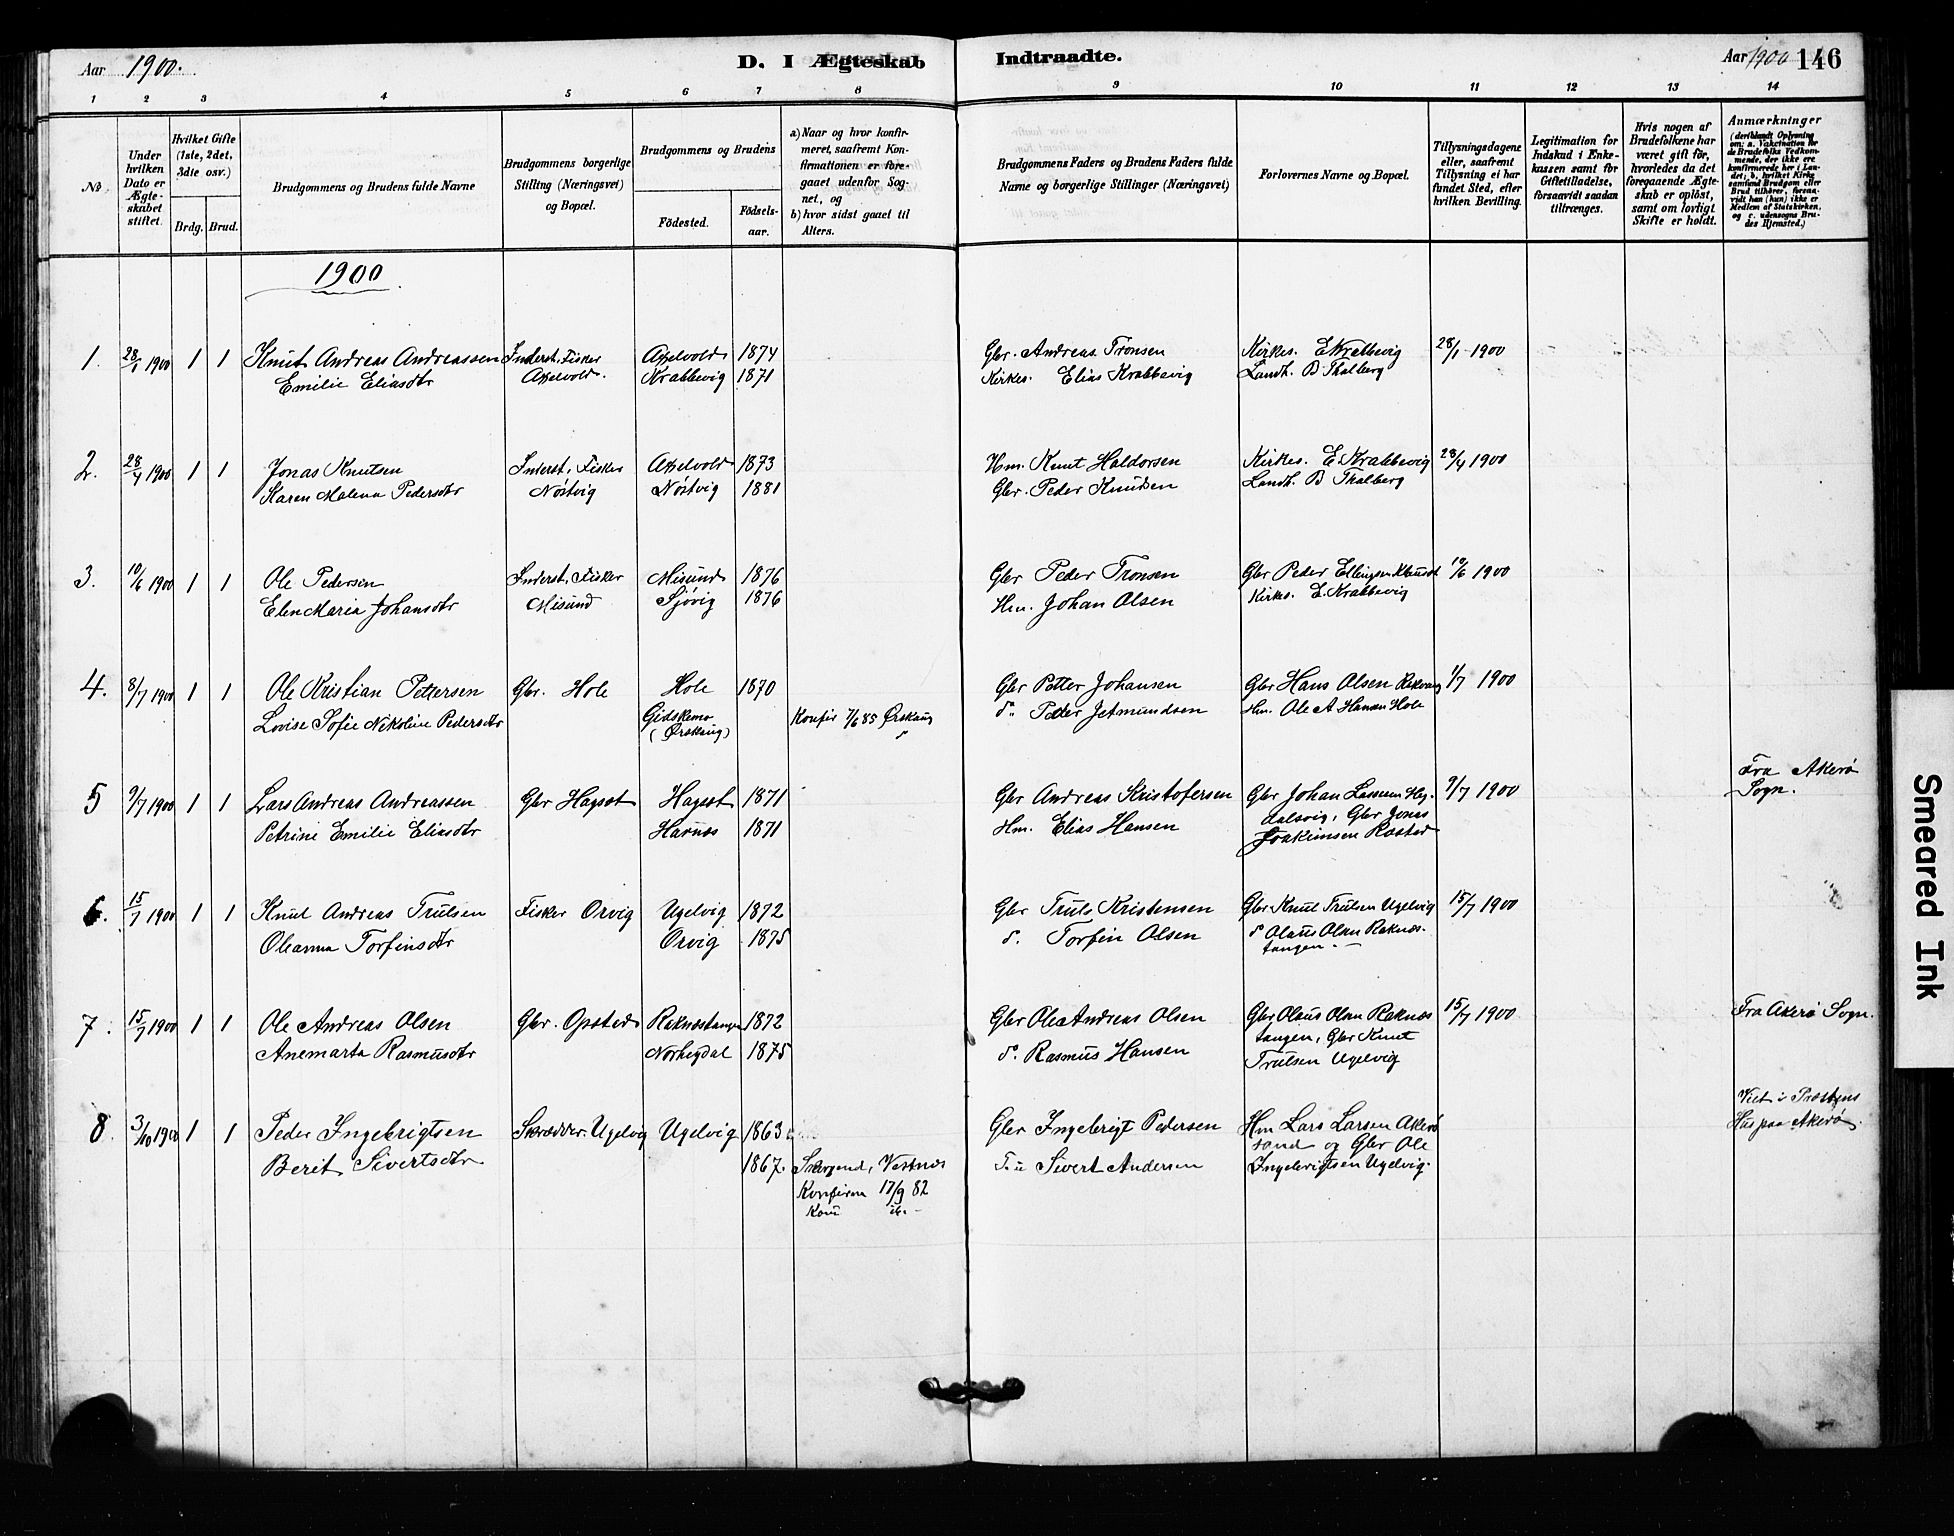 Aar 1900.
D. I Ægteskab Indtraadte.
Aar 1900 146
1 2 3 4 5 6 7 8 9 10 11 12 13 14
No.
Under hvilken Dato er Ægteskabet stiftet.
Hvilket Gifte (1ste, 2det, 3die osv.)
Brdg. Brud.
Brudgommens og Brudens fulde Navne
Brudgommens borgerlige Stilling (Næringsvei) og Bopæl.
Brudgommens og Brudens
Födested.
Födselsaar.
a) Naar og hvor konfirmeret, saafremt Konfirmationen er foregaaet udenfor Sognet, og
b) hvor sidst gaaet til Alters.
Brudgommens Faders og Brudens Faders fulde Navne og borgerlige Stillinger (Næringsvei)
Forlovernes Navne og Bopæl.
Tillysningsdagene eller, saafremt Tillysning ei har fundet Sted, efter hvilken Bevilling.
Legitimation for Indskud i Enkekassen samt for Giftetilladelse, forsaavidt saadan tiltrænges.
Hvis nogen af Brudefolkene har været gift för, hvorledes da det foregaaende Ægteskab er oplöst, samt om lovligt Skifte er holdt.
Anmærkninger
(deriblandt Oplysning om: a. Vakcination for de Brudefolks Vedkommende, der ikke ere konfirmerede her i Landet; b. hvilket Kirkesamfund Brudgom eller Brud tilhörer, forsaavidt han (hun) ikke er Medlem af Statskirken, og c. udensogns Brudes Hjemsted.)
1900
1. 28/1 1900 1 1 Knut Andreas Andreassen Inderst. Fisker Axelvold 1874 Gbr. Andreas Tronsen Kirkes. E Krabbevig 28/1 1900
Emilie Eliasdtr Axelvold. Krabbevig 1871 Kirkes. Elias Krabbevig Landh. B Thalberg
2. 28/4 1900 1 1 Jonas Knutsen Inderst. Fisker Axelvold 1873 Hm. Knut Haldorsen Kirkes. E. Krabbevig 28/4 1900
Karen Malena Pedersdtr Nöstvig Nöstvig 1881 Gbr. Peder Knudsen Landh. B Thalberg
3. 10/6 1900 1 1 Ole Pedersen Inderst. Fisker Misund 1876 Gbr Peder Tronsen Gbr Peder Ellingsen 10/6 1900
Elen Maria Johansdtr Misund Sjövig 1876 Hm. Johan Olsen Kirkes. E. Krabbevig
4. 8/7 1900 1 1 Ole Kristian Pettersen Gbr. Hole Hole 1870 Gbr Petter Johansen Gbr Hans Olsen 1/7 1900
Lovise Sofie Nikoline Pedersdtr Gidskemo (Ørskaug) Konfir 7/6 85 Ørskaug Peder Jetmundsen Hm. Ole A Hansen Hole
5 9/7 1900 1 1 Lars Andreas Andreassen Gbr Hagset Hagset 1871 Gbr Andreas Kristofersen Gbr Johan Lassesen 9/7 1900 Fra Akerö Sogn.
Petrine Emilie Eliasdtr Harnes 1871 Hm. Elias Hansen Gbr Jonas
Joakimsen Rösted
6. 15/7 1900 1 1 Knut Andreas Trulsen Fisker Orvig Ugelvig 1872 Gbr Truls Kristensen Gbr Knut Trulsen Ugelvig 15/7 1900
Oleanna Torfinsdtr Orvig 1875 Torfin Olsen Olaus Olsen Raknestangen
7. 15/7 1900 1 1 Ole Andreas Olsen Gbr. Opsted Raknestangen 1872 Gbr Ole Andreas Olsen Gbr Olaus Olsen Raknes 15/7 1900 Fra Akerö Sogn.
Anemarta Rasmusdtr Norheydal 1875 Rasmus Hansen tangen, Gbr Knut
Trulsen Ugelvig
8. 3/10 1900 1 1 Peder Ingebrigtsen Skrædder. Ugelvig Ugelvig 1863 Gbr Ingebrigt Pedersen Hm Lars Larsen Akerö Viet i Præstens
Berit Sivertsdtr 1867 Vestnes Sivert Andersen sand og Gbr Ole Hus paa Akerö.
Konfirm 17/9 82 Ingebrigtsen Ugelvig.
Kom ib.
Smeared Ink